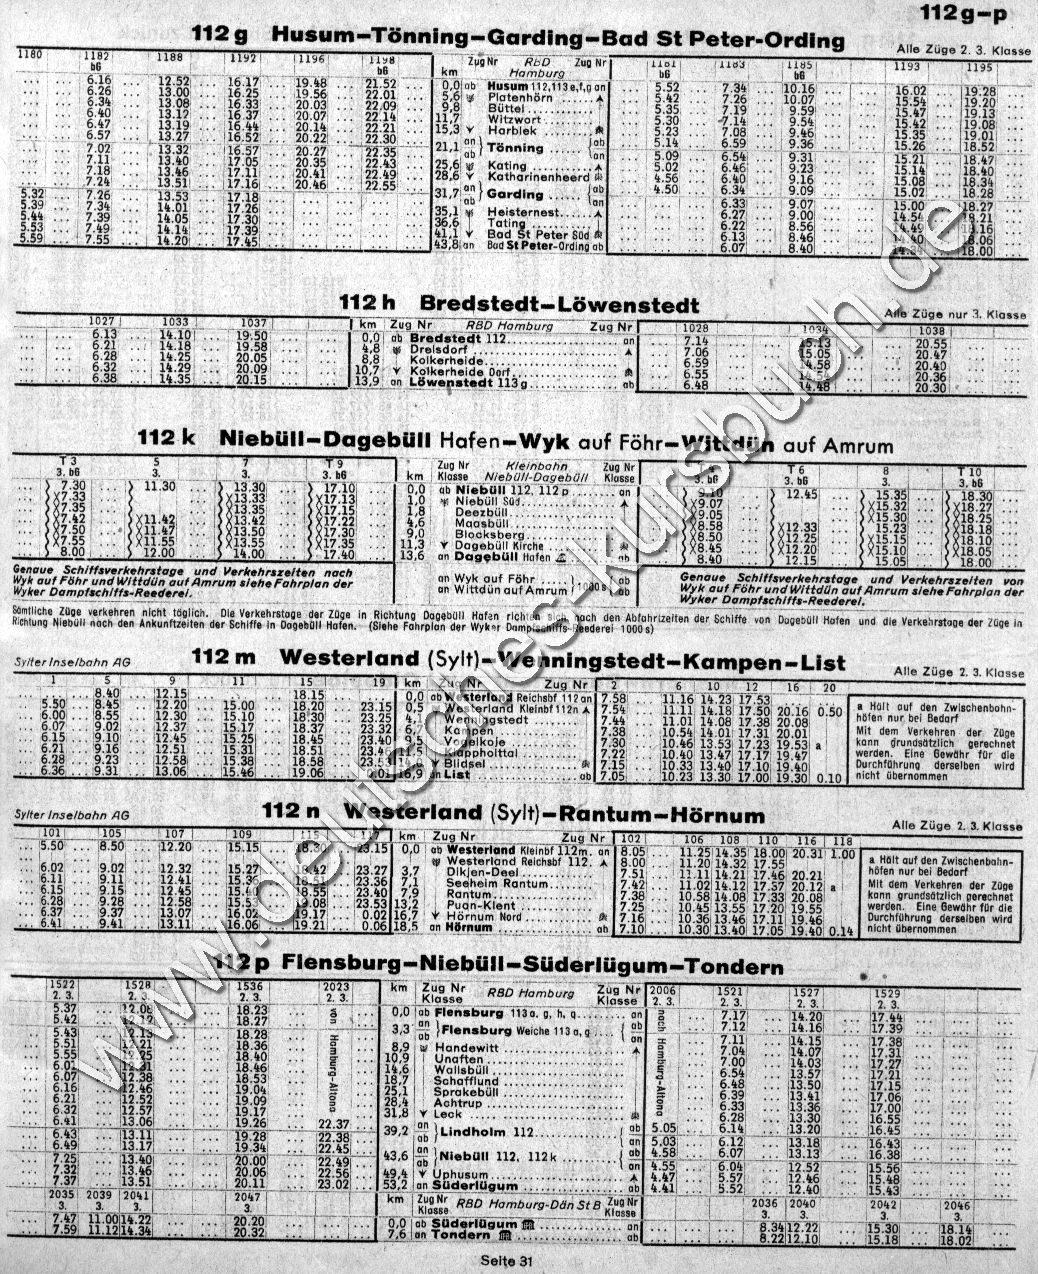 112 g–p
112 g Husum–Tönning–Garding–Bad St Peter-Ording
Alle Züge 2. 3. Klasse
1180 1182 1188 1192 1196 1198 Zug Nr RBD Zug Nr 1181 1183 1185 1193 1195
b6 b6 km Hamburg b6 b6
6.16 12.52 16.17 19.48 21.52 0,0 ab Husum 112,113 e,f,g an 5.52 7.34 10.16 16.02 19.28
6.26 13.00 16.25 19.56 22.01 5,6 Platenhörn 5.42 7.26 10.07 15.54 19.20
6.34 13.08 16.33 20.03 22.09 9,8 Büttel 5.35 7.19 9.59 15.47 19.13
6.40 13.12 16.37 20.07 22.14 11,7 Witzwort 5.30 7.14 9.54 15.42 19.08
6.47 13.19 16.44 20.14 22.21 15,3 Harblek 5.23 7.08 9.46 15.35 19.01
6.57 13.27 16.52 20.22 22.30 21,1 an Tönning ab 5.14 6.59 9.36 15.26 18.52
7.02 13.32 16.57 20.27 22.35 ab an 5.09 6.54 9.31 15.21 18.47
7.11 13.40 17.05 20.35 22.43 25,6 Kating 5.02 6.46 9.23 15.14 18.40
7.18 13.46 17.11 20.41 22.49 28,6 Katharinenheerd 4.56 6.40 9.16 15.08 18.34
7.24 13.51 17.16 20.46 22.55 31,7 an Garding ab 4.50 6.34 9.09 15.02 18.28
5.32 7.26 13.53 17.18 ab an 6.33 9.07 15.00 18.27
5.39 7.34 14.01 17.26 35,1 Heisternest 6.27 9.00 14.54 18.21
5.44 7.39 14.05 17.30 36,6 Tating 6.22 8.56 14.49 18.16
5.53 7.49 14.14 17.39 41,1 Bad St Peter Süd 6.13 8.46 14.40 18.06
5.59 7.55 14.20 17.45 43,8 an Bad St Peter-Ording ab 6.07 8.40 18.00
112 h Bredstedt–Löwenstedt
Alle Züge nur 3. Klasse
1027 1033 1037 km Zug Nr RBD Hamburg Zug Nr 1028 1034 1038
6.13 14.10 19.50 0,0 ab Bredstedt 112 an 7.14 15.13 20.55
6.21 14.18 19.58 4,8 Drelsdorf 7.06 15.05 20.47
6.28 14.25 20.05 8,8 Kolkerheide 6.59 14.58 20.40
6.32 14.29 20.09 10,7 Kolkerheide Dorf 6.55 14.54 20.36
6.38 14.35 20.15 13,9 an Löwenstedt 113 g ab 6.48 14.48 20.30
112 k Niebüll–Dagebüll Hafen–Wyk auf Föhr–Wittdün auf Amrum
T 3 5 7 T 9 Zug Nr Kleinbahn Zug Nr T 6 8 T 10
3. b6 3. 3. 3. b6 km Klasse Niebüll-Dagebüll Klasse 3. b6 3. b6 3. 3. b6
7.30 11.30 13.30 17.10 0,0 ab Niebüll 112, 112 p an 9.10 12.45 15.35 18.30
X7.33 X13.33 X17.13 1,0 Niebüll Süd X9.07 X15.32 X18.27
X7.35 X13.35 X17.15 1,8 Deezbüll X9.05 X15.30 X18.25
X7.42 X11.42 X13.42 X17.22 4,6 Maasbüll X8.58 X12.33 15.23 X18.18
X7.50 X11.47 X13.50 X17.30 9,0 Blocksberg X8.50 X12.25 X15.15 X18.10
X7.55 X11.55 X13.55 X17.35 11,3 Dagebüll Kirche X8.45 X12.20 X15.10 X18.05
8.00 12.00 14.00 17.40 13,6 an Dagebüll Hafen ab 8.40 12.15 15.05 18.00
Genaue Schiffsverkehrstage und Verkehrszeiten nach
Wyk auf Föhr und Wittdün auf Amrum siehe Fahrplan der
Wyker Dampfschiffs-Reederei.
an Wyk auf Föhr ab
an Wittdün auf Amrum 1000 s ab
Genaue Schiffsverkehrstage und Verkehrszeiten von
Wyk auf Föhr und Wittdün auf Amrum siehe Fahrplan der
Wyker Dampfschiffs-Reederei.
Sämtliche Züge verkehren nicht täglich. Die Verkehrstage der Züge in Richtung Dagebüll Hafen richten sich nach den Abfahrtzeiten der Schiffe von Dagebüll Hafen und die Verkehrstage der Züge in
Richtung Niebüll nach den Ankunftzeiten der Schiffe in Dagebüll Hafen. (Siehe Fahrplan der Wyker Dampfschiffs-Reederei 1000 s)
Sylter Inselbahn AG
112 m Westerland (Sylt)–Wenningstedt–Kampen–List
Alle Züge 2. 3. Klasse
1 5 9 11 15 19 km Zug Nr Zug Nr 2 6 10 12 16 20
8.40 12.15 18.15 0,0 ab Westerland Reichsbf 112 an 7.58 11.16 14.23 17.53
5.50 8.45 12.20 15.00 18.20 23.15 0,5 Westerland Kleinbf 112n 7.54 11.11 14.18 17.50 20.16 0.50
6.00 8.55 12.30 15.10 18.30 23.25 Wenningstedt 7.44 11.01 14.08 17.38 20.08
6.07 9.02 12.37 15.17 18.37 23.32 Kampen 7.38 10.54 14.01 17.31 20.01
6.15 9.10 12.45 15.25 18.45 23.40 9,5 Vogelkoje 7.30 10.46 13.53 17.23 19.53 a
6.21 9.16 12.51 15.31 18.51 Klappholttal 7.22 10.40 13.47 17.17 19.47
6.28 9.23 12.58 15.38 18.58 23.53 Blidsel 7.15 10.33 13.40 17.10 19.40
6.36 9.31 13.06 15.46 19.06 0.01 16,9 an List ab 7.05 10.23 13.30 17.00 19.30 0.10
a Hält auf den Zwischenbahn-
höfen nur bei Bedarf
Mit dem Verkehren der Züge
kann grundsätzlich gerechnet
werden. Eine Gewähr für die
Durchführung derselben wird
nicht übernommen
Sylter Inselbahn AG
112 n Westerland (Sylt)–Rantum–Hörnum
Alle Züge 2. 3. Klasse
101 105 107 109 115 117 km Zug Nr Zug Nr 102 106 108 110 116 118
5.50 8.50 12.20 15.15 18.30 23.15 0,0 ab Westerland Kleinbf 112m. an 8.05 11.25 14.35 18.00 20.31 1.00
Westerland Reichsbf 112. 8.00 11.20 14.32 17.55
6.02 9.02 12.32 15.27 18.42 23.27 3,7 Dikjen-Deel 7.51 11.11 14.21 17.46 20.21
6.11 9.11 12.41 15.36 18.51 23.36 7,1 Seeheim Rantum 7.42 11.02 14.12 17.37 20.12 a
6.15 9.15 12.45 18.55 23.40 7,9 Rantum 7.38 10.58 14.08 17.33 20.08
6.28 9.28 12.58 15.53 19.08 23.53 13,2 Puan-Klent 7.25 10.45 13.55 17.20 19.55
6.37 9.37 13.07 16.02 19.17 0.02 16,7 Hörnum Nord 7.16 10.36 13.46 17.11 19.46
6.41 9.41 13.11 16.06 19.21 0.06 18,5 an Hörnum ab 7.10 10.30 13.40 17.05 19.40 0.14
a Hält auf den Zwischenbahn-
höfen nur bei Bedarf
Mit dem Verkehren der Züge
kann grundsätzlich gerechnet
werden. Eine Gewähr für die
Durchführung derselben wird
nicht übernommen
112 p Flensburg–Niebüll–Süderlügum–Tondern
1522 1528 1536 2023 km Zug Nr RBD Hamburg Zug Nr 2006 1521 1527 1529
2. 3. 2. 3. 2. 3. 2. 3. Klasse Klasse 2. 3. 2. 3. 2. 3. 2. 3.
von Hamburg-Altona
nach Hamburg-Altona
5.37 12.08 18.23 0,0 ab Flensburg 113 a, g, h, q an 7.17 14.20 17.44
5.42 12.12 18.27 3,3 an Flensburg Weiche 113 a, g ab 7.12 14.16 17.39
5.43 12.13 18.28 ab an 7.11 14.15 17.38
5.51 12.21 18.36 8,9 Handewitt 7.04 14.07 17.31
5.55 12.25 18.40 10,9 Unaften 7.00 14.03 17.27
6.01 12.31 18.46 14,6 Wallsbüll 6.54 13.57 17.21
6.07 12.38 18.53 18,7 Schafflund 6.48 13.50 17.15
6.16 12.46 19.04 25,1 Sprakebüll 6.39 13.41 17.06
6.21 12.52 19.09 28,4 Achtrup 6.33 13.36 17.00
6.32 12.57 19.17 31,8 Leck 6.28 13.30 16.55
6.41 13.06 19.26 22.37 39,2 an Lindholm 112 ab 5.05 6.14 13.20 16.45
6.43 13.11 19.28 22.38 ab an 5.03 6.12 13.18 16.43
6.49 13.17 19.34 22.45 43,6 an Niebüll 112, 112 k ab 4.58 6.07 13.13 16.38
7.25 13.40 20.00 22.49 ab an 4.55 6.04 12.52 15.56
7.32 13.46 20.06 22.56 49,4 Uphusum 4.47 5.57 12.46 15.48
7.37 13.51 20.11 23.02 53,2 an Süderlügum ab 4.41 5.52 12.40 15.43
2035 2039 2041 2047 km Zug Nr RBD Hamburg-Dän St B Zug Nr 2036 2040 2042 2046
3. 3. 3. 3. Klasse Klasse 3. 3. 3. 3.
7.47 11.00 14.22 20.20 0,0 ab Süderlügum an 8.34 12.22 15.30 18.14
7.59 11.12 14.34 20.32 7,6 an Tondern ab 8.22 12.10 15.18 18.02
Seite 31
www.deutsches-kursbuch.de